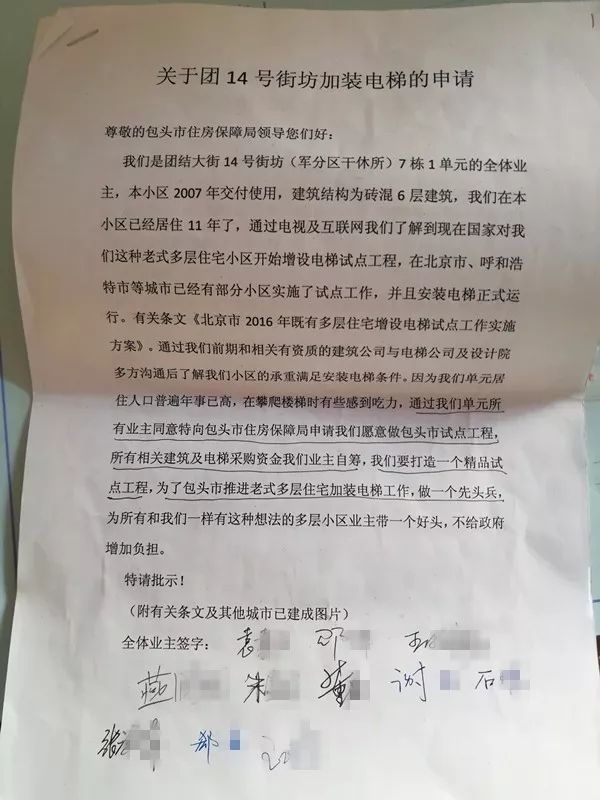 关于团 14 号街坊加装电梯的申请
尊敬的包头市住房保障局领导您们好：
我们是团结大街 14 号街坊（军分区干休所）7 栋 1 单元的全体业
主，本小区 2007 年交付使用，建筑结构为砖混 6 层建筑，我们在本
小区已经居住 11 年了，通过电视及互联网我们了解到现在国家对我
们这种老式多层住宅小区开始增设电梯试点工程，在北京市、呼和浩
特市等城市已经有部分小区实施了试点工作，并且安装电梯正式运
行。有关条文《北京市 2016 年既有多层住宅增设电梯试点工作实施
方案》。通过我们前期和相关有资质的建筑公司与电梯公司及设计院
多方沟通后了解我们小区的承重满足安装电梯条件。因为我们单元居
住人口普遍年事已高，在攀爬楼梯时有些感到吃力，通过我们单元所
有业主同意特向包头市住房保障局申请我们愿意做包头市试点工程，
所有相关建筑及电梯采购资金我们业主自筹，我们要打造一个精品试
点工程，为了包头市推进老式多层住宅加装电梯工作，做一个先头兵，
为所有和我们一样有这种想法的多层小区业主带一个好头，不给政府
增加负担。
特请批示！
（附有关条文及其他城市已建成图片）
全体业主签字： 袁 邵
朱 董 谢 石
张 郝